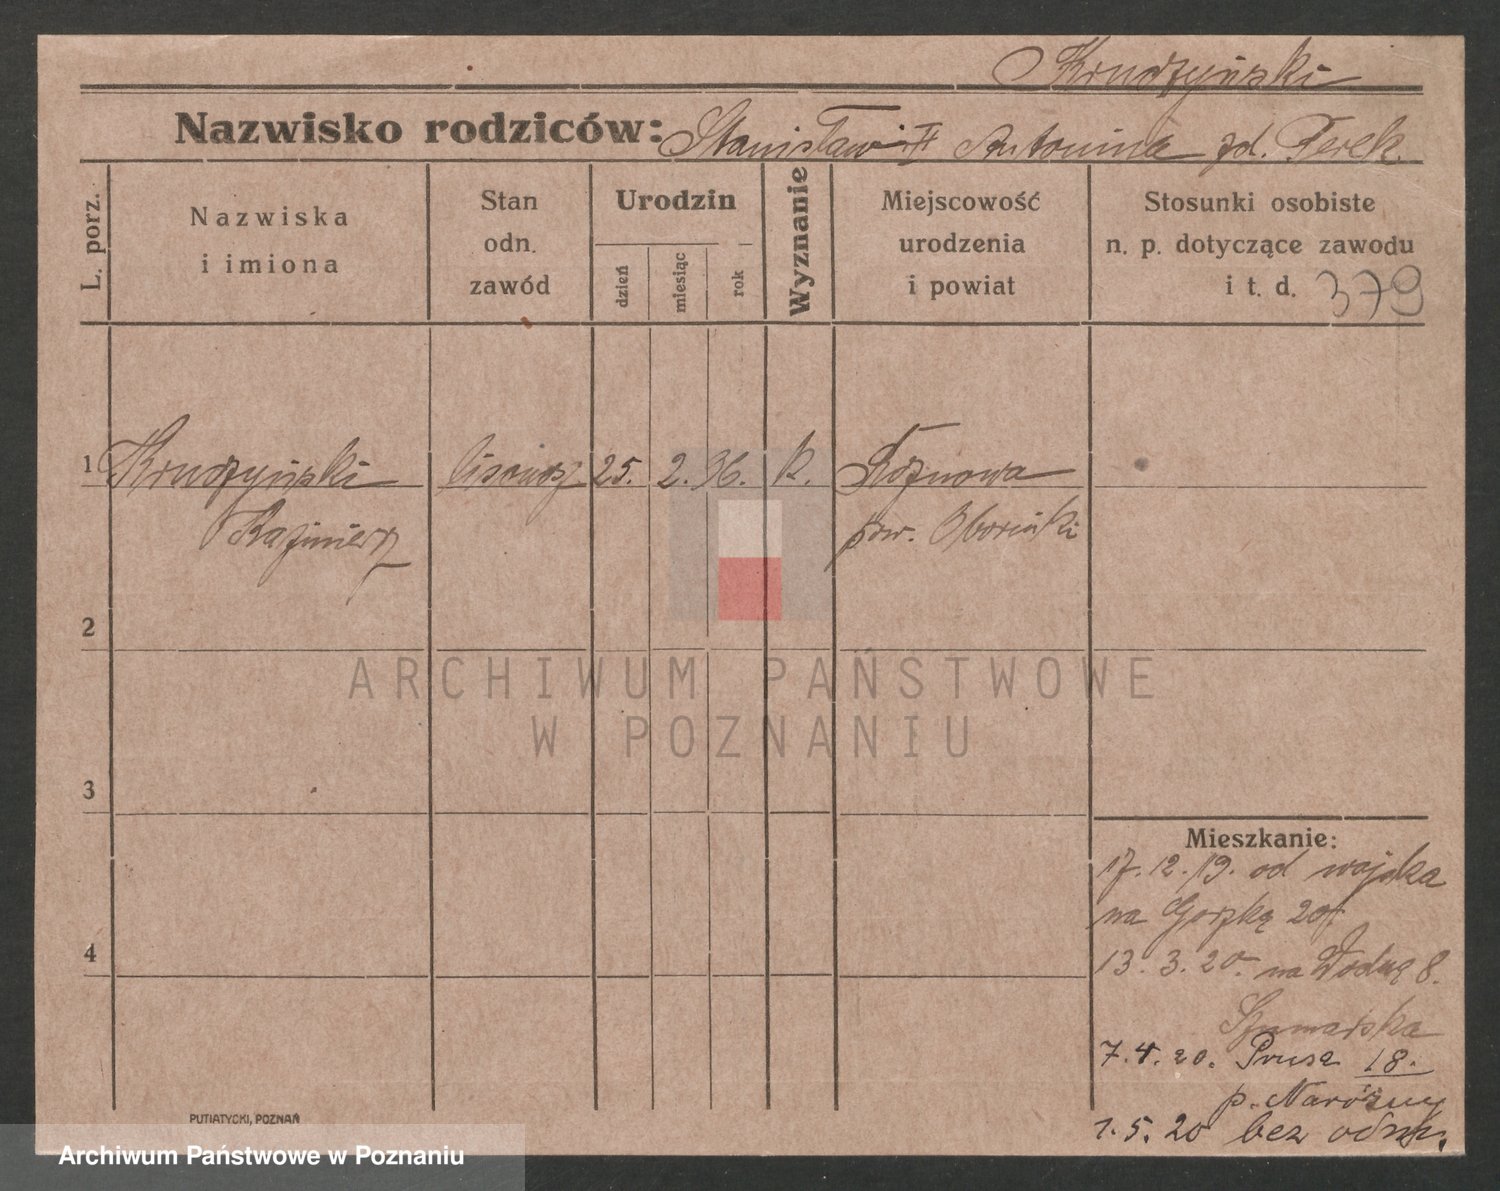 Kruszyński
Nazwisko rodziców: Stanisław i Antonina zd. Ferek.
L. porz.
Nazwiska
i imiona
Stan
odn.
zawód
Urodzin
dzień
miesiąc
rok
Wyznanie
Miejscowość
urodzenia
i powiat
Stosunki osobiste
n. p. dotyczące zawodu
i t. d. 379
1 25. 2. 96. k. Rożnowa
Kazimierz pow. Obornicki
2
3
4
Mieszkanie:
17. 12. 19. od wojska
na 20
13. 3. 20. na Wodną 8.
Szumańska
7. 4. 20. Prusa 18.
p. Narożny
1. 5. 20 bez odm.
PUTIATYCKI, POZNAŃ
ARCHIWUM PAŃSTWOWE
W POZNANIU
Archiwum Państwowe w Poznaniu